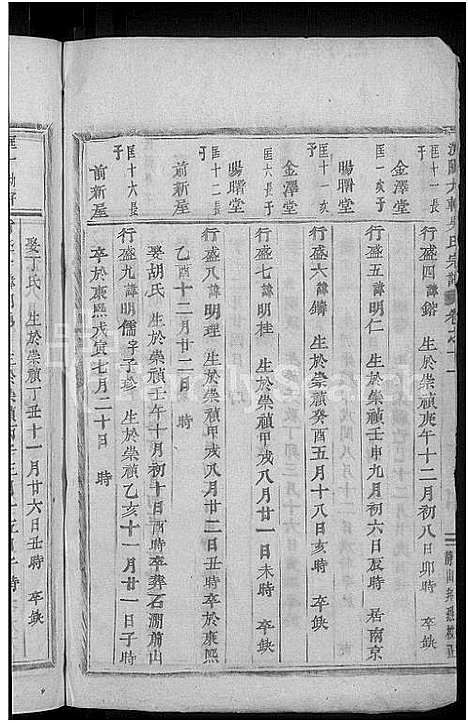 吳氏宗譜 卷之十一
匡一長子
金澤堂
行盛四 諱鎔 生於崇禎庚午十二月初八日卯時 卒缺
匡一次子
金澤堂
行盛五 諱明仁 生於崇禎壬申九月初六日辰時 居南京
匡十一長子
暘曙堂
行盛六 諱鑄 生於崇禎癸酉五月十八日亥時 卒缺
匡六長子
金澤堂
行盛七 諱明桂 生於崇禎甲戌八月廿一日未時 卒缺
匡十二長子
暘曙堂
行盛八 諱明理 生於崇禎甲戌八月廿二日 卒於康熙
乙酉十二月廿二日 時
前新屋
娶胡氏 生於崇禎壬午十月初十日酉時卒葬石澗前山
匡十六長子
前新屋
行盛九 諱明儒字子珍 生於崇禎乙亥十一月廿一日子時
卒於康熙戊寅七月二十日 時
娶丁氏 生於崇禎丁丑十一月廿六日丑時 卒缺